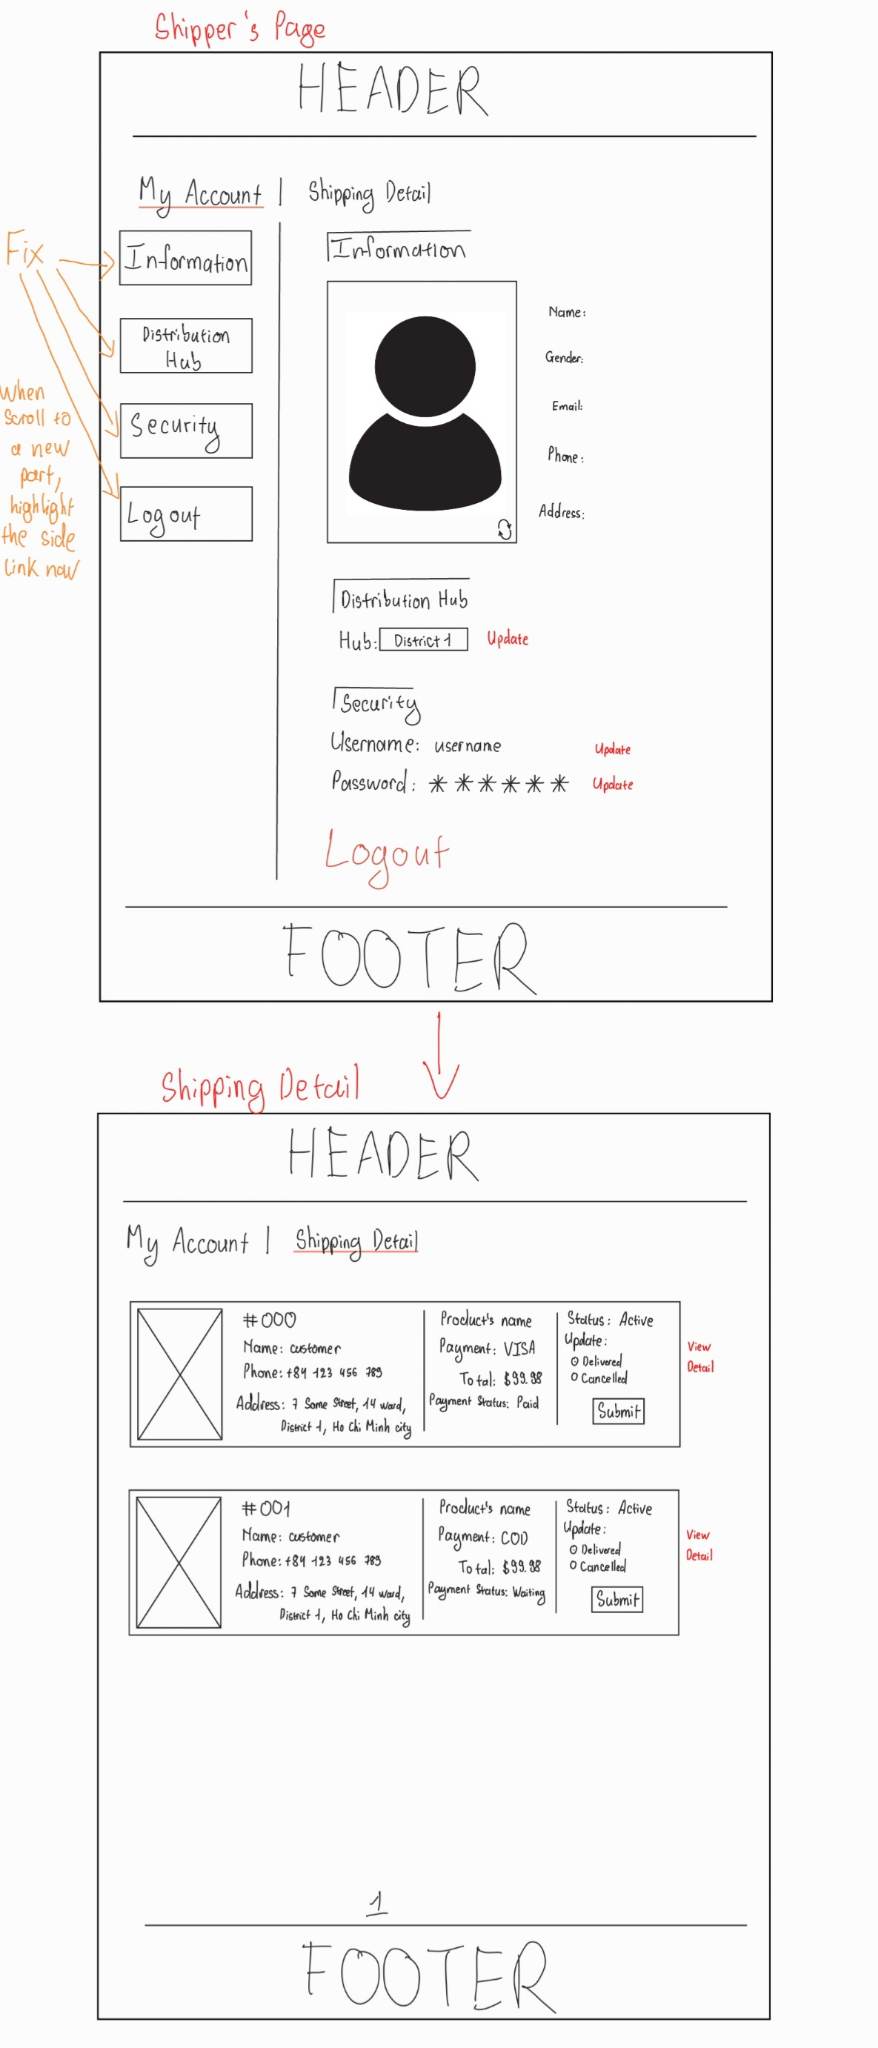 Shipper's Page
HEADER
My Account | Shipping Detail
Fix
When
Scroll to
a new
part,
highlight
the side
link now
Information
Distribution
Hub
Security
Logout
Information
Name:
Gender:
Email:
Phone:
Address:
Distribution Hub
Hub: District 1 Update
Security
Username: username Update
Password: ****** Update
Logout
FOOTER
Shipping Detail
HEADER
My Account | Shipping Detail
#000
Name: customer
Phone: +84 123 456 789
Address: 7 Some Street, 14 ward,
District 1, Ho Chi Minh city
Product's name
Payment: VISA
Total: $99.98
Payment Status: Paid
Status: Active
Update:
Delivered
Cancelled
Submit
View
Detail
#001
Name: customer
Phone: +84 123 456 789
Address: 7 Some Street, 14 ward,
District 1, Ho Chi Minh city
Product's name
Payment: COD
Total: $99.98
Payment Status: Waiting
Status: Active
Update:
Delivered
Cancelled
Submit
View
Detail
1
FOOTER